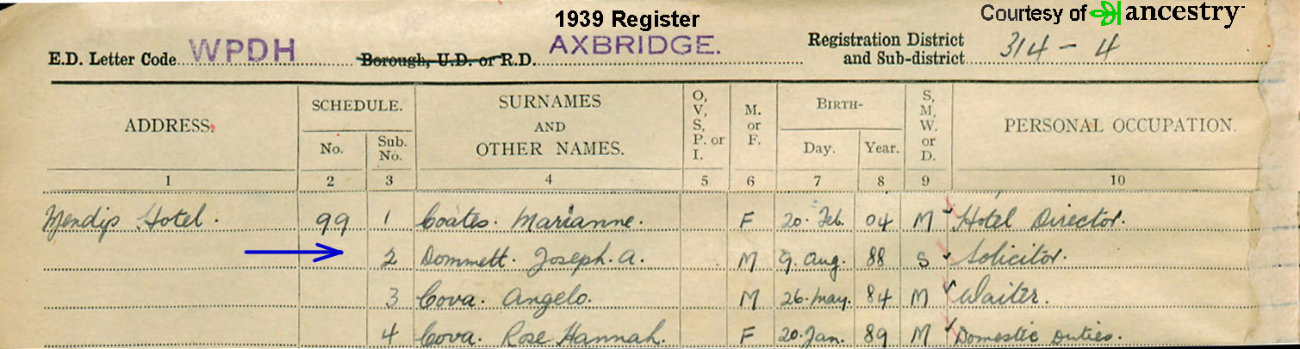 1939 Register
Courtesy of ancestry
E.D. Letter Code WPDH Borough, U.D. or R.D. AXBRIDGE. Registration District and Sub-district 314 - 4
ADDRESS. SCHEDULE. No. Sub. No. SURNAMES AND OTHER NAMES. O, V, S, P. or I. M. or F. BIRTH- Day. Year. S, M, W. or D. PERSONAL OCCUPATION.
1 2 3 4 5 6 7 8 9 10
Mendip Hotel. 99 1 Coates. Marianne. F 20. Feb. 04 M Hotel Director.
2 Dommett. Joseph. A. M 9. Aug. 88 S Solicitor.
3 Cova. Angelo. M 26. May. 84 M Waiter.
4 Cova. Rose Hannah. F 20. Jan. 89 M Domestic Duties.